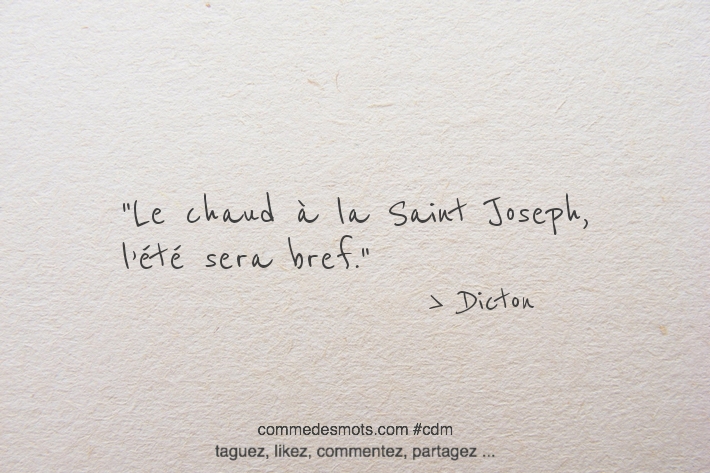 "Le chaud à la Saint Joseph,
l'été sera bref."
> Dicton
commedesmots.com #cdm
taguez, likez, commentez, partagez ...